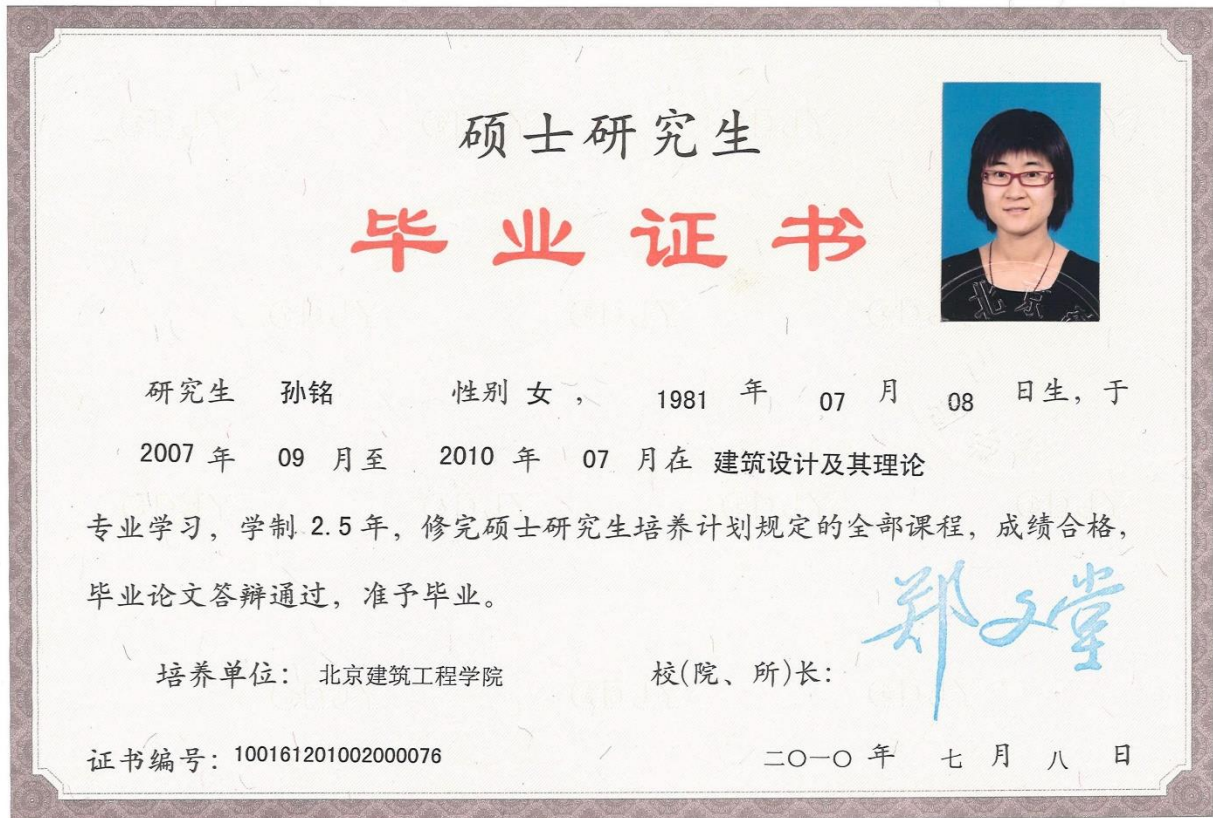 硕士研究生
毕业证书
研究生 孙铭 性别 女 , 1981 年 07 月 08 日生，于
2007 年 09 月至 2010 年 07 月在 建筑设计及其理论
专业学习，学制 2.5 年，修完硕士研究生培养计划规定的全部课程，成绩合格，
毕业论文答辩通过，准予毕业。
培养单位： 北京建筑工程学院 校(院、所)长： 郑文堂
证书编号：100161201002000076 二○一○ 年 七 月 八 日
北京